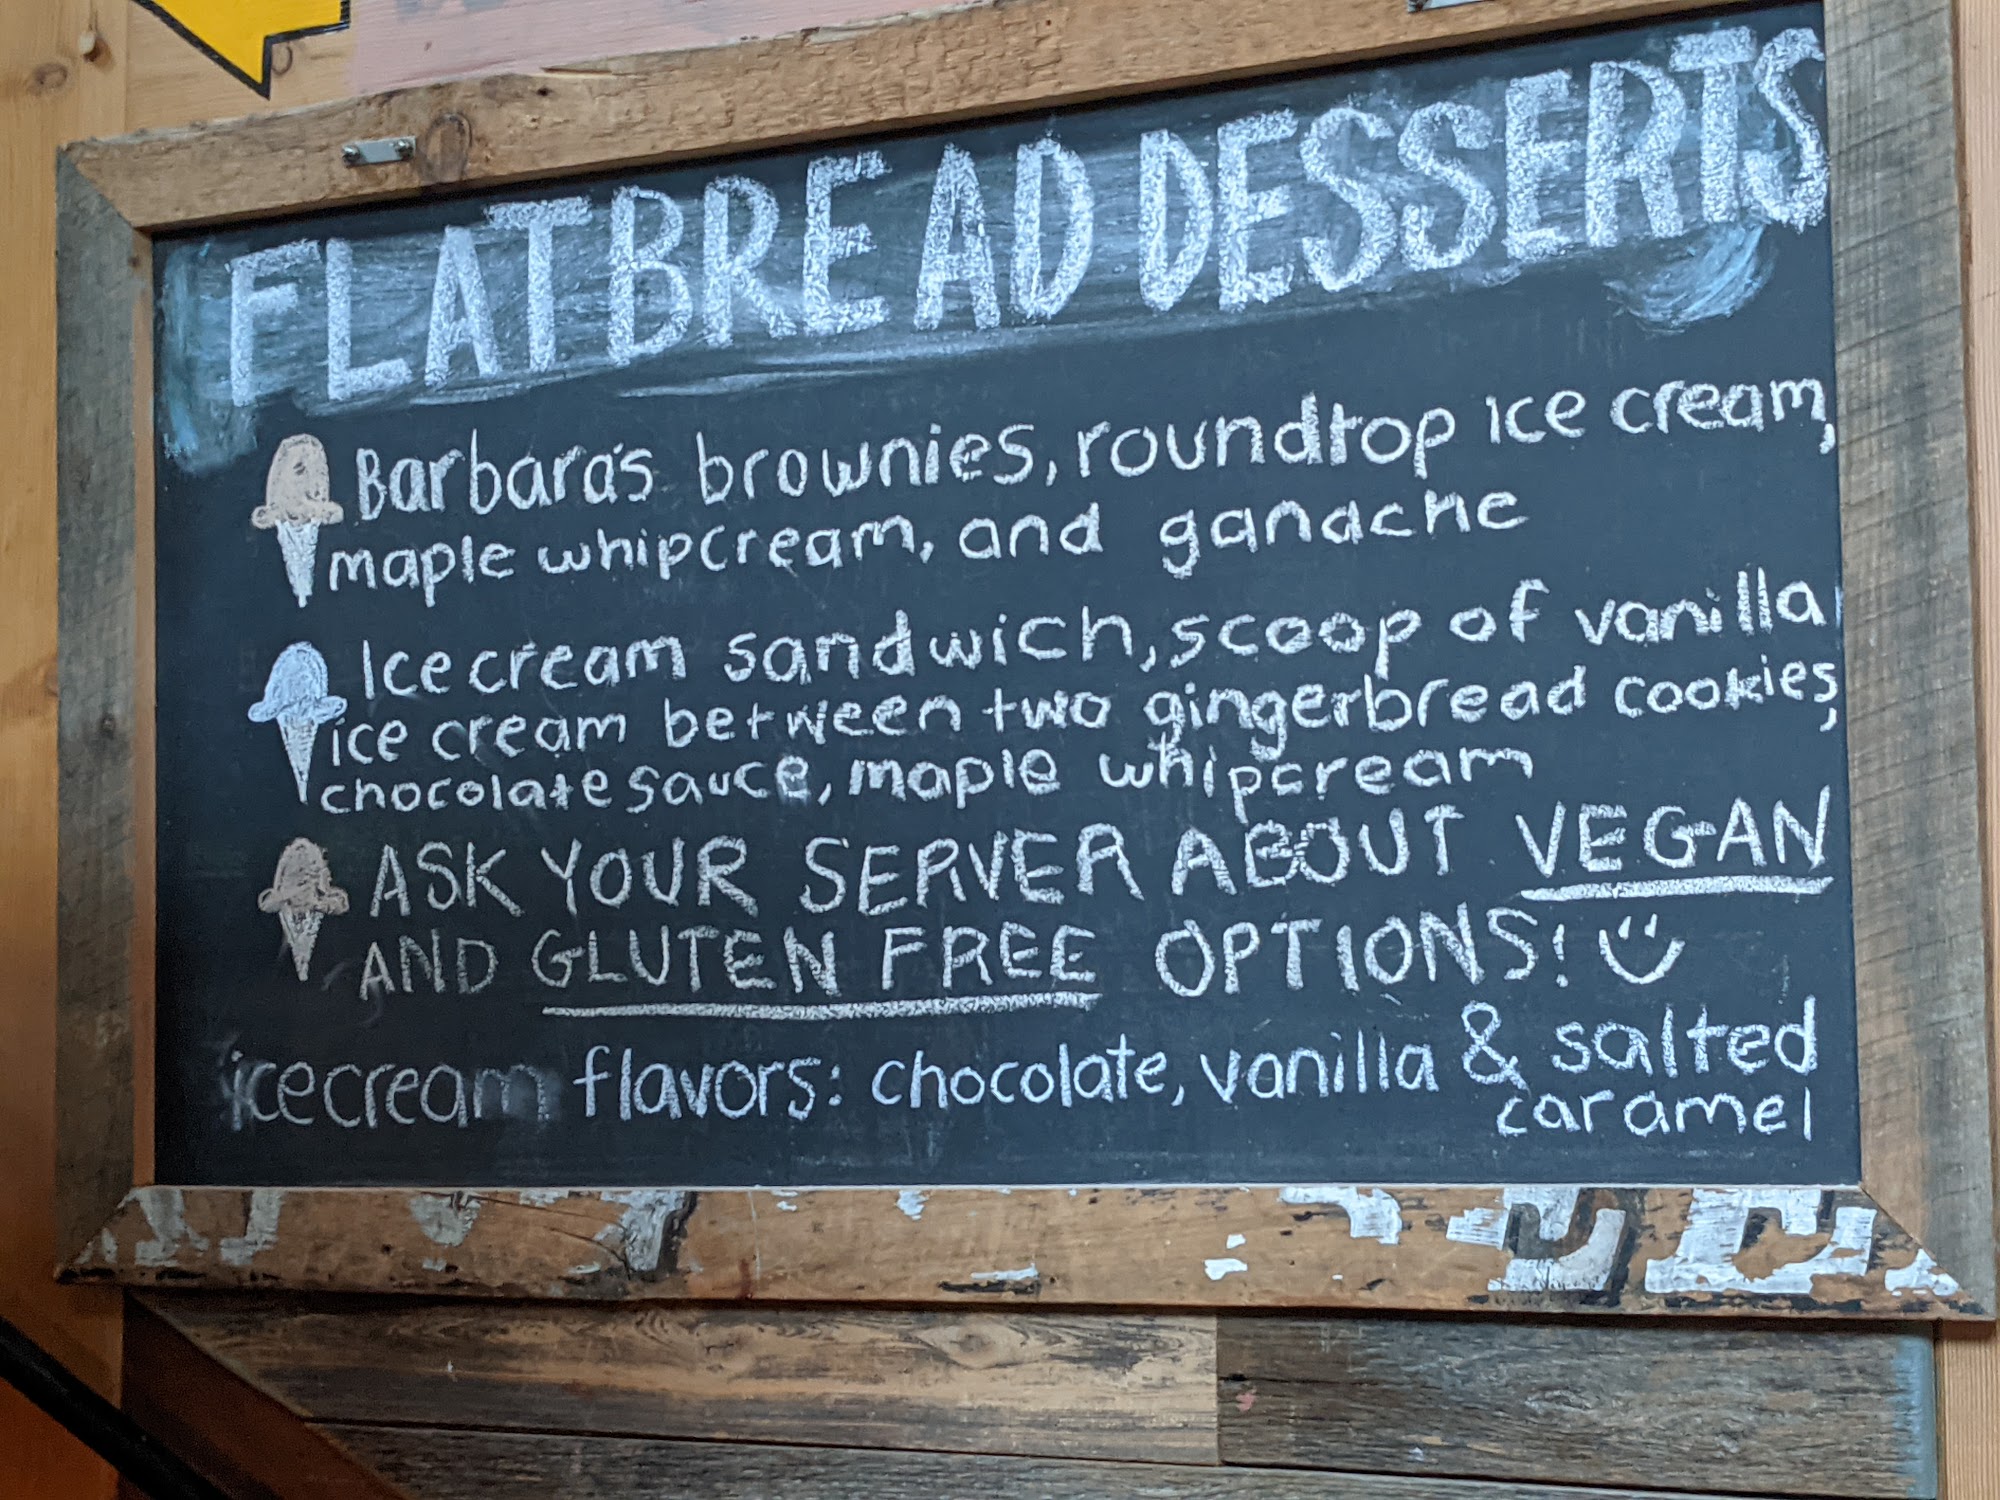 FLATBREAD DESSERTS
Barbara's brownies, roundtop ice cream,
maple whipcream, and ganache
Ice cream sandwich, scoop of vanilla
ice cream between two gingerbread cookies,
chocolate sauce, maple whipcream
ASK YOUR SERVER ABOUT VEGAN
AND GLUTEN FREE OPTIONS!
icecream flavors: chocolate, vanilla & salted
caramel